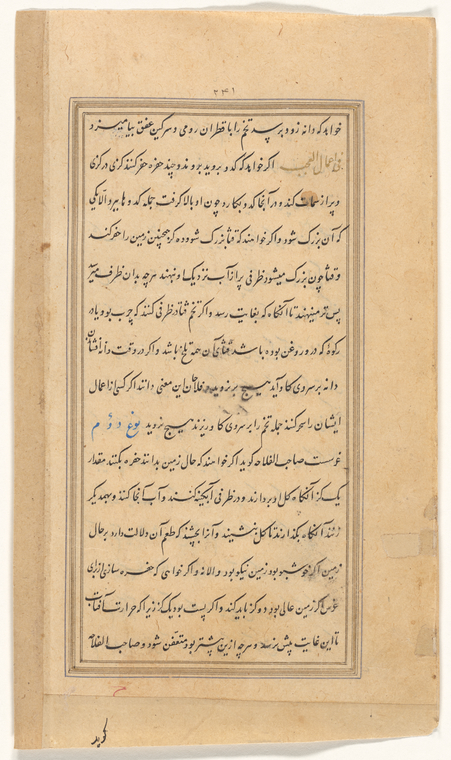 ۲۴۱
خواهد که دانه زود برسد تخم را با قطران رومی و سرکین عفق بیامیزد
فی اعمال العجب اکر خواهد که کدو بروید بروند و چند حفره حفر کنند کزی در کزی
و پر از کنند و در آنجا کدو بکارد چون او بالا کرفت جمله کدوها ببرد الا یکی
که آن بزرک شود و اکر خواهند که قثا بزرک شود ده کز همچنین زمین را حفر کند
و قثا چون بزرک میشود ظرفی پر از آب نزدیک او نهند هرچه بدان طرف میرسد
پس تر مینهند تا آنکاه که بغایت رسد و اکر تخم قثا در ظرفی کنند که چرب بود یا در
رکوهٔ که درو روغن بوده باشد قثای آن همه تلخ باشد و اکر در وقت دانه افشان
دانه بر سروی کاو آید هیچ برنروید و فلاحان این معنی دانند اکر کسی از اعمال
ایشان را سحر کند جمله تخم را بر سروی کاو ریزند هیچ نروید نوع دوم
غرست صاحب الفلاحه کوید اکر خواهند که حال زمین بدانند حفره بکنند مقدار
یک کز آنکاه کل بردارند و در ظرفی آبکینه کنند و آب آنجا کنند و بهم دیکر
زنند آنکاه بکذارند تا کل بنشیند و آنرا بچشند که طعم آن دلالت دارد بر حال
زمین اکر خوشبو بود زمین نیکو بود والا نه و اکر خواهی که حفره سازی از برای
غرس اکر زمین عالی بود دو کز باید کند و اکر پست بود یک کز زیرا که حرارت آفتاب
تا این غایت پیش نرسد و هرچه ازین پیشتر بود متعفن شود و صاحب الفلاحه
کوید